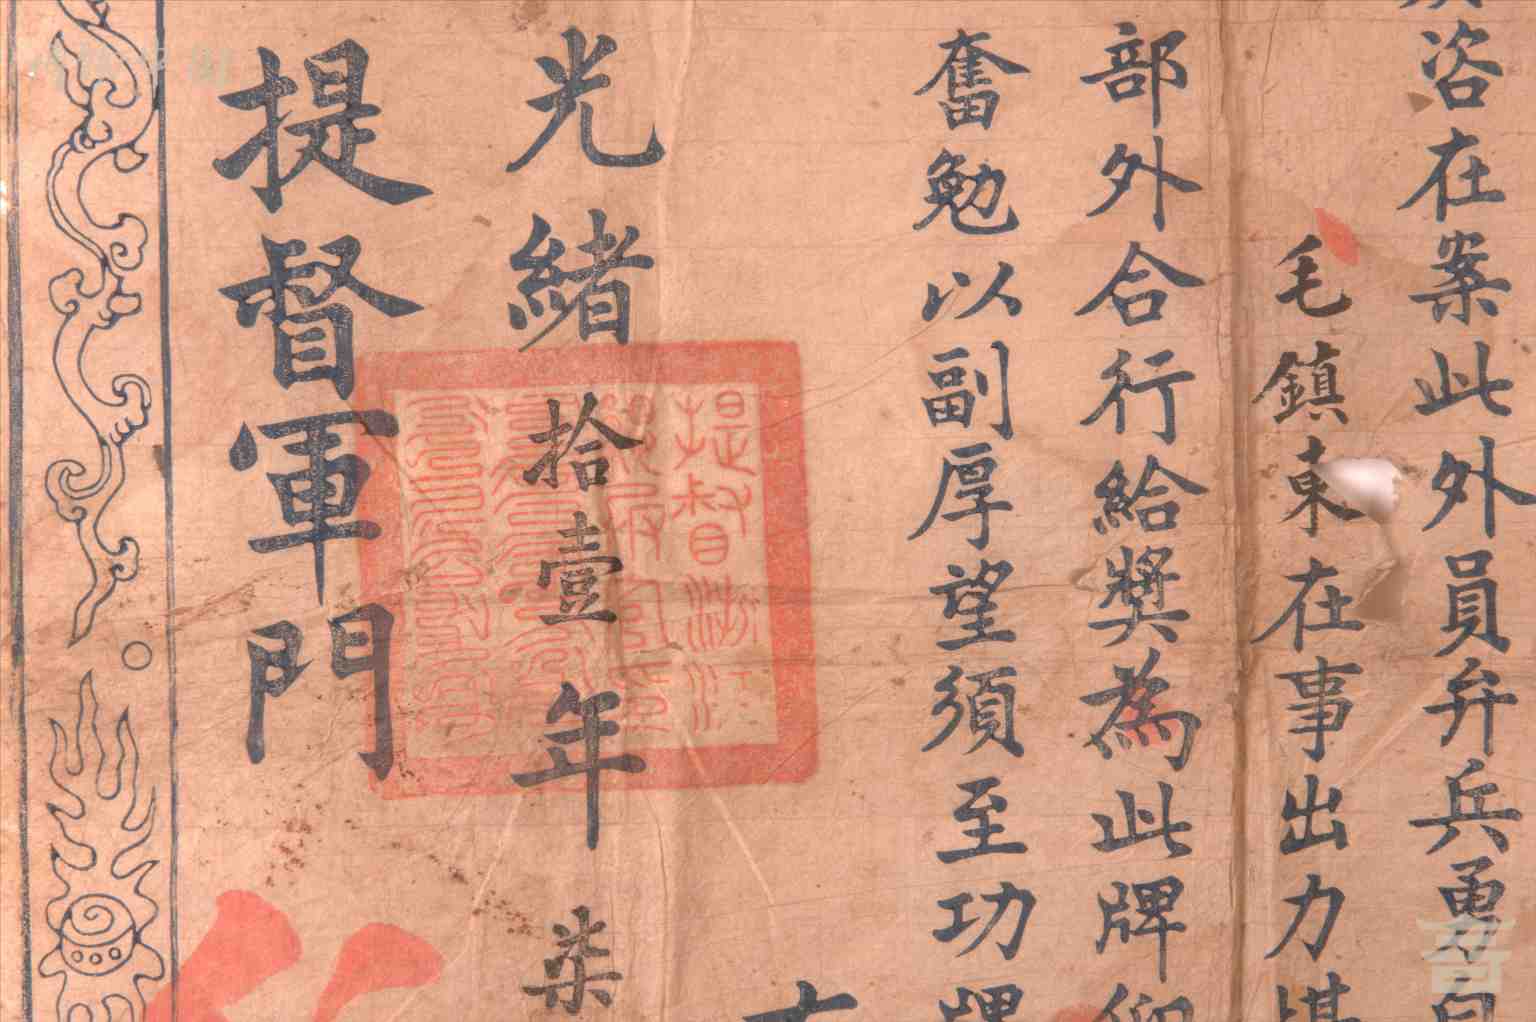 咨在案此外員弁兵勇
毛鎮東在事出力堪
部外合行給獎為此牌仰
奮勉以副厚望須至功牌
光緒拾壹年柒
提督軍門
提督浙江